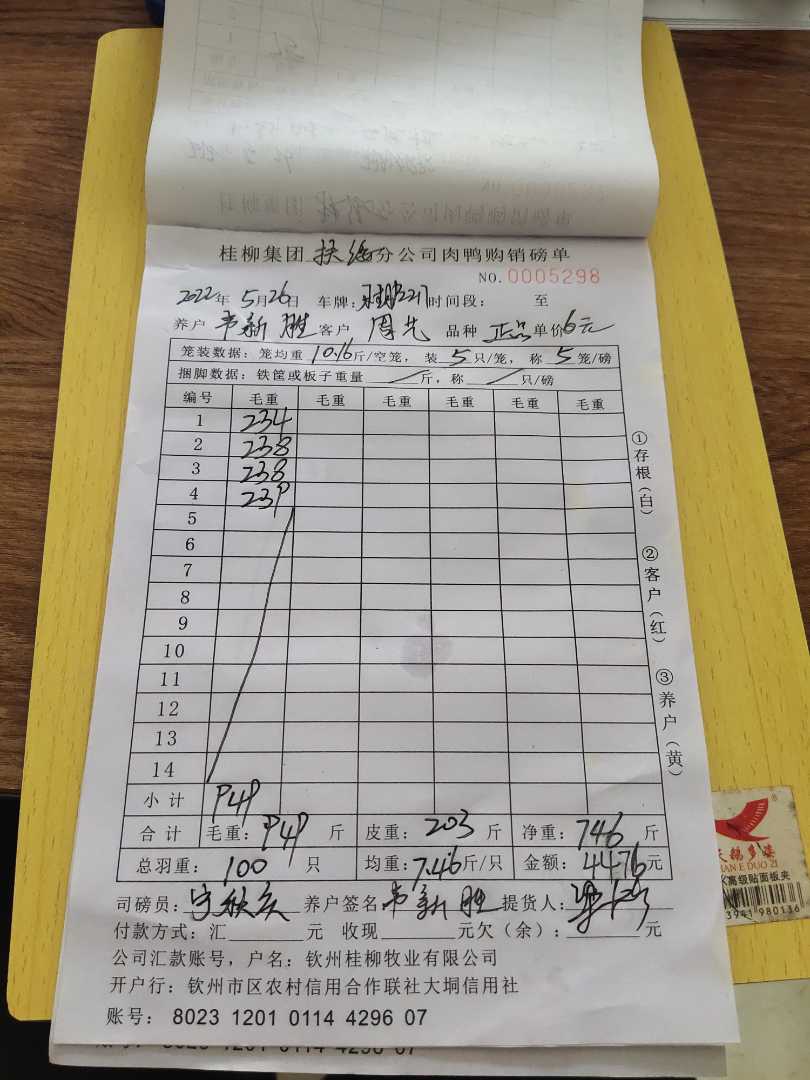 桂柳集团 扶绥 分公司肉鸭购销磅单
NO.0005298
2022年 5月26日 车牌: 时间段: 至
养户 韦新胜 客户 周先 品种 正品 单价6元
笼装数据: 笼均重 10.16斤/空笼, 装 5 只/笼, 称 5 笼/磅
捆脚数据: 铁筐或板子重量 / 斤, 称 / 只/磅
编号 毛重 毛重 毛重 毛重 毛重 毛重
1 234
2 238
3 238
4 239
5
6
7
8
9
10
11
12
13
14
小计 949
合计 毛重: 949 斤 皮重: 203 斤 净重: 746 斤
总羽重: 100 只 均重: 7.46斤/只 金额: 4476元
司磅员: 养户签名 韦新胜 提货人:
付款方式: 汇 元 收现 元欠(余): 元
公司汇款账号, 户名: 钦州桂柳牧业有限公司
开户行: 钦州市区农村信用合作联社大垌信用社
账号: 8023 1201 0114 4296 07
①存根(白)
②客户(红)
③养户(黄)
天鹅多姿
AN E DUO ZI
K高级贴面板夹
3941 980136